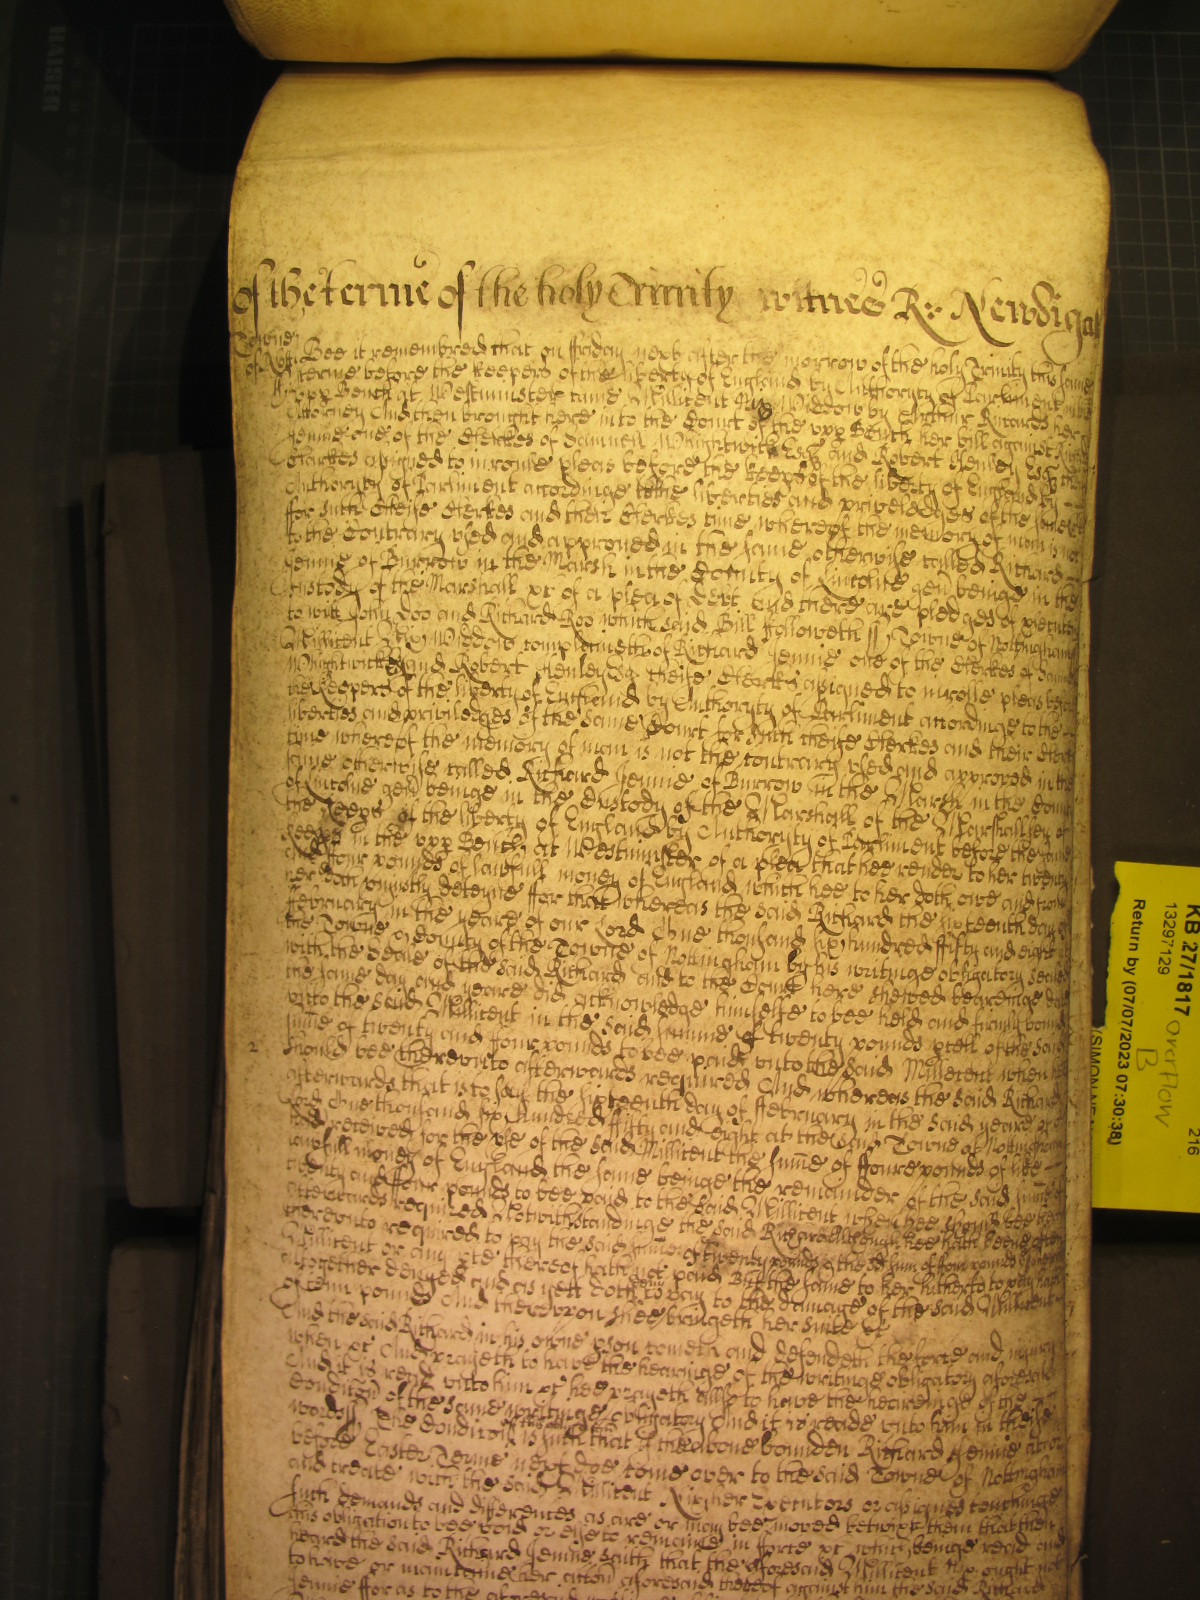 of the terme of the holy Trinity witnes R: Newdigat
Towne of Nott Bee it remembred that on ffriday next after the morrow of the holy Trinity this same
terme before the keepers of the liberty of England by Authoryty of Parliament in the
upp Bench at Westminster came Millicent Nix Widdow by Arthur Ricards her
Attorney And then brought here into the Court of the upp Bench her bill against Richard
Jennie one of the Clerkes of Samuell Whightwick Esqr and Robert Henley Esqr cheife
Clarkes assigned to inrowle pleas before the keeps of the liberty of England by
Authoryty of Parliment accordinge to the liberties and priviledges of the same Court
for such Cheife Clerkes and their Clerkes time whereof the memory of man is not
to the Contrary used and approved in the same otherwise called Richard
Jennie of Burrow in the Marsh in the County of Lincolne gen beinge in the
Custody of the Marshall &c of a plea of Debt And there are pledges of prosecuting
to witt John Doo and Richard Roo which said Bill followeth ss Towne of Nottingham
Millicent Nix Widdow complaineth of Richard Jennie one of the Clerkes of Samuell
Whightwicke Esqr and Robert Henley Esqr cheife Clerckes assigned to inrolle pleas before
the keepers of the liberty of England by Authoryty of Parliment accordinge to the
liberties and priviledges of the same Court for such cheife Clerkes and their Clerkes
time whereof the memory of man is not the contrary used and approved in the
same otherwise called Richard Jennie of Burrow in the Marsh in the County
of Lincolne gen beinge in the Custody of the Marshall of the Marshallsey of
the Keeps of the liberty of England by Authoryty of Parliment before the same
keeps in the upp Bench at Westminster of a plea that hee render to her twenty
and four pounds of lawfull money of England which hee to her doth owe and from
her doth unjustly deteyne ffor that whereas the said Richard the sixteenth day of
ffebruary in the yeare of our Lord One thousand six hundred ffifty and eight at
the Towne & County of the Towne of Nottingham by his writinge obligatory sealed
with the seale of the said Richard and to the Court here shewed bearinge date
the same day and yeare did acknowledge himselfe to bee held and firmly bound
unto the said Millicent in the said summe of twenty pounds pcell of the said
summe of twenty and four pounds to bee paid unto the said Millicent when hee
2 should bee therevnto afterwards required And whereas the said Richard
afterwards that is to say the sixteenth day of ffebruary in the said yeare of
Lord One thousand six hundred ffifty and eight at the said Towne of Nottingham
had received for the use of the said Millicent the summe of ffoure pounds of like
lawfull money of England the same beinge the remainder of the said summe of
twenty and ffour pounds to bee paid to the said Millicent when hee should bee
afterwards required Notwithstandinge the said Richard although hee hath beene often
therevnto required to pay the said summe of twenty pounds & the sd sum of four pounds
Millicent or any pte thereof hath not paid But the same to her hitherto to pay hath
altogether denyed and as yett doth deny to pay to the damage of the said Millicent
of tenn pounds And therevpon shee bringeth her suite &c
And the said Richard in his owne pson cometh and defendeth the force and injury
when &c And prayeth to have the hearinge of the writinge obligatory aforesaid
And it is read unto him &c hee prayeth allso to have the hearinge of the
Condicion of the same writinge obligatory And it is reade unto him in these
words ss The Condicion of this obligacion is such that if the above bounden Richard Jennie
before Easter Terme next doe come over to the said Towne of Nottingham
and treate with the said Millicent Nix her Executors or assignes touchinge
such demands and differences as are or may bee moved betwixt them that then
this obligation to bee void or else to remaine in force &c which beinge read and
heard the said Richard Jennie saith that the aforesaid Millicent Nix ought not
to have or maintaine her action aforesaid thereof against him the said Richard
Jennie ffor as to the
KB 27/1817
13297129
Return by (07/07/2023 07:30:38)
216
overflow
B
HAISER